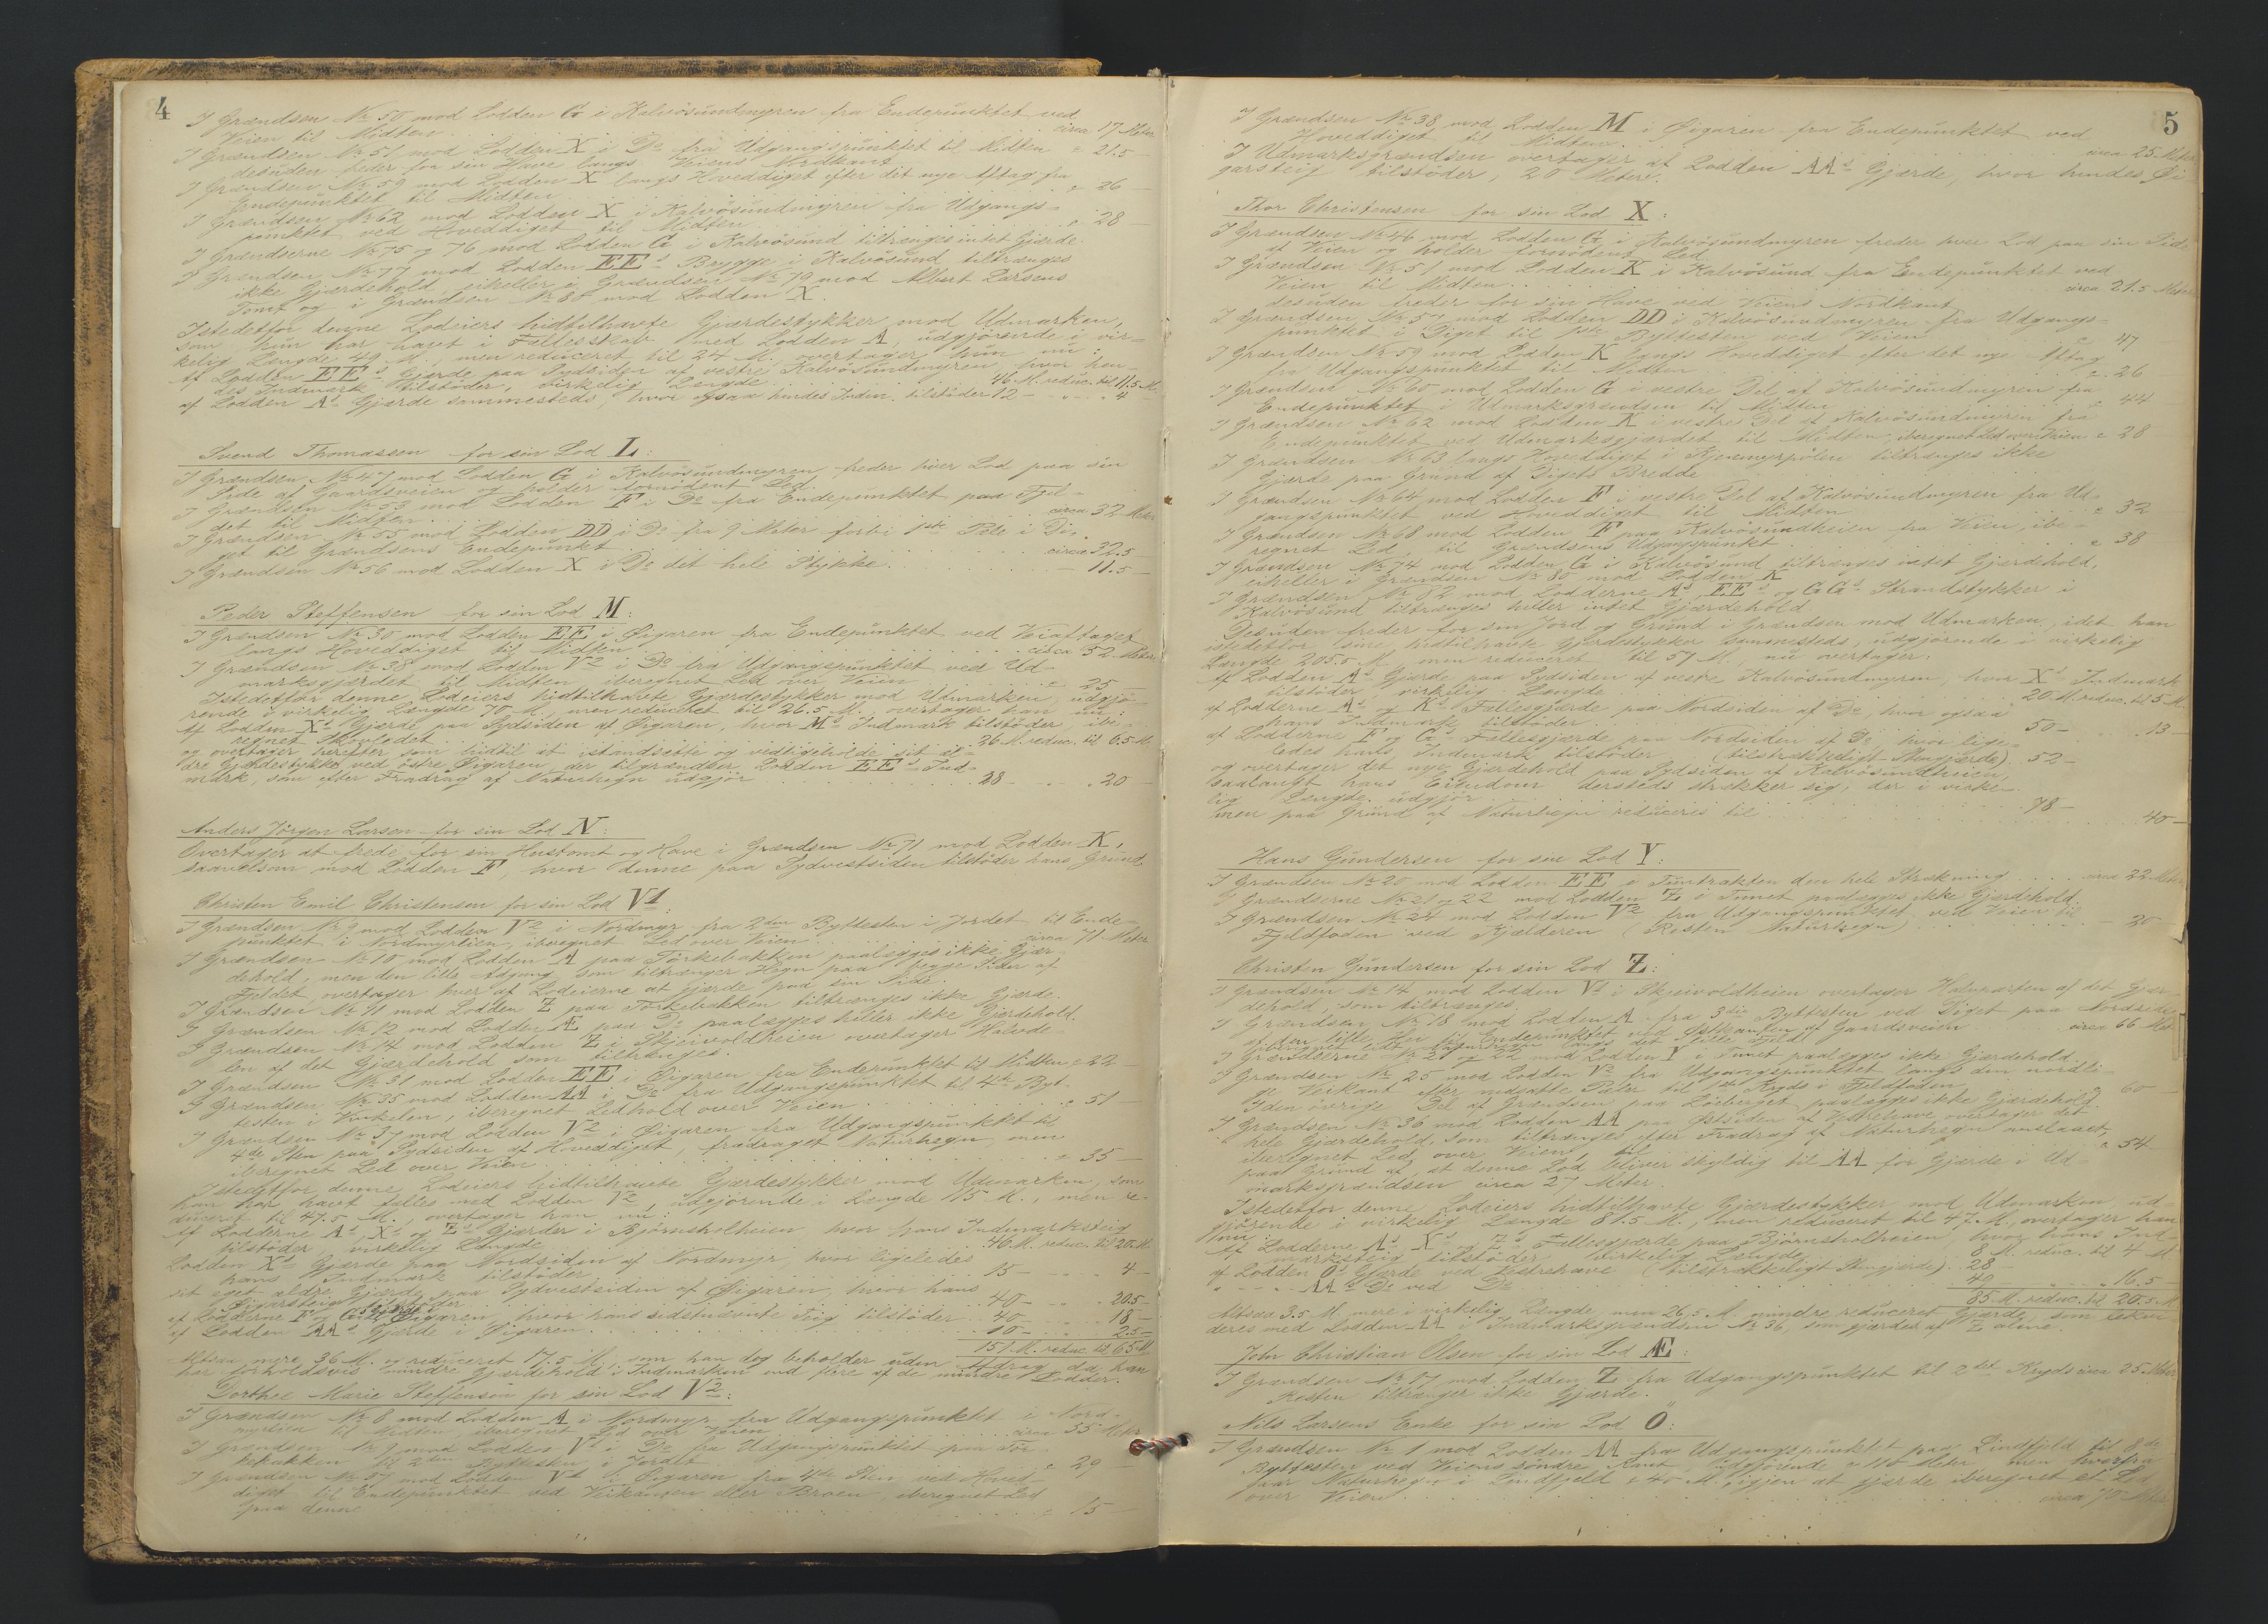 4
I Grændsen No 50 mod Lodden G i Kalvösundmyren fra Endepunktet ved
Veien til Midten . . . circa 17 Meter
I Grændsen No 51 mod Lodden X i Do fra Udgangspunktet til Midten " 21.5 —
desuden freder for sin Have langs Veiens Nordkant
I Grændsen No 59 mod Lodden X langs Hoveddiget efter det nye Aftag fra
Endepunktet til Midten . . . " 26 —
I Grændsen No 62 mod Lodden X i Kalvösundmyren fra Udgangs-
punktet ved Hoveddiget til Midten . . . " 28 —
I Grændserne No 75 og 76 mod Lodden G i Kalvösund tiltrænges intet Gjærde.
I Grændsen No 77 mod Lodden EEs Brygge i Kalvösund tiltrænges
ikke Gjærdehold, eiheller i Grændsen No 79 mod Albert Larsens
Tomt og i Grændsen No 80 mod Lodden X.
Istedetfor denne Lodeiers hidtilhavte Gjærdestykker mod Udmarken,
som hun har havt i Fællesskab med Lodden A, udgjörende i vir-
kelig Længde 49 M., men reduceret til 24 M. overtager hun nu:
Af Lodden EEs Gjærde paa Sydsiden af vestre Kalvösundmyren, hvor hen-
des Indmark tilstöder, virkelig Længde . . . 46 M. reduc. til 11.5 M.
af Lodden As Gjærde sammesteds, hvor ogsaa hendes Indm. tilstöder 12 — " — " 4
Svend Thomassen for sin Lod L:
I Grændsen No 47 mod Lodden G i Kalvösundmyren freder hver Lod paa sin
Side af Gaardsveien og holder fornödent Led.
I Grændsen No 53 mod Lodden F i Do fra Endepunktet paa Fjel-
det til Midten . . . circa 32 Meter
I Grændsen No 55 mod Lodden DD i Do fra 9 Meter forbi 1ste Pæle i Di-
get til Grændsens Endepunkt . . . circa 32.5 —
I Grændsen No 56 mod Lodden X i Do det hele Stykke . . . — 11.5 —
Peder Steffensen for sin Lod M:
I Grændsen No 30 mod Lodden EE i Öigaren fra Endepunktet ved Veiaftaget
langs Hoveddiget til Midten . . . circa 52 Meter
I Grændsen No 38 mod Lodden V2 i Do fra Udgangspunktet ved Ud-
marksgjærdet til Midten iberegnet Led over Veien . . . " 25 —
Istedetfor denne Lodeiers hidtilhavte Gjærdestykker mod Udmarken, udgjö-
rende i virkelig Længde 70 M., men reduceret til 26.5 M., overtager han nu:
Af Lodden Xs Gjærde paa Sydsiden af Öigaren, hvor Ms Indmark tilstöder, ibe-
regnet Skovledet . . . 26 M. reduc. til 6.5 M.
og overtager herefter som hidtil at istandsætte og vedligeholde sit æl-
dre Gjærdestykke ved östre Öigaren, der tilgrændser Lodden EEs Ind-
mark, som efter Fradrag af Naturhegn udgjör . . . 28 — " — " 20 —
Anders Jörgen Larsen for sin Lod N:
Overtager at frede for sin Hustomt og Have i Grændsen No 71 mod Lodden K,
saavelsom mod Lodden F, hvor denne paa Sydvestsiden tilstöder hans Grund.
Christen Emil Christensen for sin Lod V1:
I Grændsen No 9 mod Lodden V2 i Nordmyr fra 2den Byttesten i Jordet til Ende-
punktet i Nordmyrlien, iberegnet Led over Veien . . . circa 71 Meter
I Grændsen No 10 mod Lodden A paa Törkebakken paalægges ikke Gjær-
dehold, men den lille Adgang som tiltrænger Hegn paa begge Sider af
Fjeldet, overtager hver af Lodeierne at gjærde paa sin Side.
I Grændsen No 11 mod Lodden Z paa Törkebakken tiltrænges ikke Gjærde.
I Grændsen No 12 mod Lodden Æ paa Do paalægges heller ikke Gjærdehold.
I Grændsen No 14 mod Lodden Z i Skjeivoldheien overtager Halvde-
len af det Gjærdehold som tiltrænges.
I Grændsen No 31 mod Lodden EE i Öigaren fra Endepunktet til Midten " 22 —
I Grændsen No 35 mod Lodden AA i Do fra Udgangspunktet til 4de Byt-
testen i Vinkelen, iberegnet Ledhold over Veien . . . " 51 —
I Grændsen No 37 mod Lodden V2 i Öigaren fra Udgangspunktet til
4de Sten paa Sydsiden af Hoveddiget, fradraget Naturhegn, men
iberegnet Led over Veien . . . " 35 —
Istedetfor denne Lodeiers hidtilhavte Gjærdestykker mod Udmarken, som
han har havt fælles med Lodden V2, udgjörende i Længde 115 M., men re-
duceret til 47.5 M., overtager han nu:
Af Lodderne As, Xs og Zs Gjærder i Björnsholheien hvor hans Indmarksteig
tilstöder, virkelig Længde . . . 46 M. reduc. til 20 M.
Lodden Xs Gjærde paa Nordsiden af Nordmyr, hvor ligeledes
hans Indmark tilstöder . . . 15 — " — " 4 —
sit eget ældre Gjærde paa Sydvestsiden af Öigaren, hvor hans
Öigarsteig tilstöder . . . 40 — " — " 20.5 —
af Lodderne F og Gs Gjærde i Öigaren, hvor hans sidstnævnte Teig tilstöder . 40 — " 18 —
af Lodden AAs Gjærde i Öigaren . . . 10 — " 2.5 —
151 M. reduc. til 65 M.
Altsaa mere 36 M. og reduceret 17.5 M., som han dog beholder uden Afdrag, da han
har forholdsvis mindre Gjærdehold i Indmarken end flere af de mindre Lodder.
Dorthee Marie Steffensen for sin Lod V2:
I Grændsen No 8 mod Lodden A i Nordmyr fra Udgangspunktet i Nord-
myrlien til Midten, iberegnet Led over Veien . . . circa 55 Meter
I Grændsen No 9 mod Lodden V1 i Do fra Udgangspunktet paa Tör-
kebakken til 2den Byttesten i Jordet . . . " 29 —
I Grændsen No 37 mod Lodden V1 i Öigaren fra 4de Sten ved Hoved-
diget til Endepunktet ved Veikanten eller Broen, iberegnet Led
paa denne . . . " 15 —
5
I Grændsen No 38 mod Lodden M i Öigaren fra Endepunktet ved
Hoveddiget til Midten . . . circa 25 Meter
I Udmarksgrændsen overtager af Lodden AAs Gjærde, hvor hendes Öi-
garsteig tilstöder, 20 Meter.
Thor Christensen for sin Lod X:
I Grændsen No 46 mod Lodden G i Kalvösundmyren freder hver Lod paa sin Side
af Veien og holder fornödent Led
I Grændsen No 51 mod Lodden K i Kalvösund fra Endepunktet ved
Veien til Midten . . . circa 21.5 Meter
desuden freder for sin Have ved Veiens Nordkant
I Grændsen No 57 mod Lodden DD i Kalvösundmyren fra Udgangs-
punktet i Diget til 1ste Byttesten ved Veien . . . " 47
I Grændsen No 59 mod Lodden K langs Hoveddiget efter det nye Aftag
fra Udgangspunktet til Midten . . . " 26 —
I Grændsen No 60 mod Lodden G i vestre Del af Kalvösundmyren fra
Endepunktet i Udmarksgrændsen til Midten . . . " 44 —
I Grændsen No 62 mod Lodden K i vestre Del af Kalvösundmyren fra
Endepunktet ved Udmarksgjærdet til Midten, iberegnet Led over Veien " 28
I Grændsen No 63 langs Hoveddiget i tiltrænges ikke
Gjærde paa Grund af Digets Bredde
I Grændsen No 64 mod Lodden F i vestre Del af Kalvösundmyren fra Ud-
gangspunktet ved Hoveddiget til Midten . . . " 32
I Grændsen No 68 mod Lodden F paa Kalvösundheien fra Veien, ibe-
regnet Led, til Grændsens Udgangspunkt . . . " 38
I Grændsen No 74 mod Lodden G i Kalvösund tiltrænges intet Gjærdehold,
eiheller i Grændsen No 80 mod Lodden K
I Grændsen No 82 mod Lodderne As, EEs og GGs Strandstykker i
Kalvösund tiltrænges heller intet Gjærdehold
Desuden freder for sin Jord og Grund i Grændsen mod Udmarken, idet han
istedetfor sine hidtilhavte Gjærdestykker sammesteds, udgjörende i virkelig
Længde 205.5 M., men reduceret til 57 M., nu overtager:
Af Lodden As Gjærde paa Sydsiden af vestre Kalvösundmyren, hvor Xs Indmark
tilstöder, virkelig Længde . . . 20 M. reduc. til 5 M.
af Lodderne As og Ks Fællesgjærde paa Nordsiden af Do, hvor ogsaa
hans Indmark tilstöder . . . 50 — . . . 13 —
af Lodderne F og Gs Fællesgjærde paa Nordsiden af Do hvor lige-
ledes hans Indmark tilstöder . (tilstrækkeligt Stengjærde) . 52 —
og overtager det nye Gjærdehold paa Sydsiden af Kalvösundheien,
saalangt hans Eiendom dersteds strækker sig, der i virke-
lig Længde udgjör . . . 78 —
men paa Grund af Naturhegn reduceres til . . . 40 —
Hans Gundersen for sin Lod Y:
I Grændsen No 20 mod Lodden EE i Tuntrakten den hele Strækning . . . circa 22 Meter
I Grændserne No 21 og 22 mod Lodden Z i Tunet paalægges ikke Gjærdehold
I Grændsen No 24 mod Lodden V2 fra Udgangspunktet ved Veien til
Fjeldfoden ved Kjælderen (Resten Naturhegn) . . . — 20 —
Christen Gundersen for sin Lod Z:
I Grændsen No 14 mod Lodden V1 i Skjeivoldheien overtager Halvparten af det Gjær-
dehold, som tiltrænges
I Grændsen No 18 mod Lodden A fra 3die Byttesten ved Diget paa Nordsiden
af den lille Hei til Endepunktet ved Östkanten af Gaardsveien . . . circa 66 Met
iberegnet Led Naturhegn langs det lille Fjeld
I Grændserne No 21 og 22 mod Lodden Y i Tunet paalægges ikke Gjærdehold
I Grændsen No 25 mod Lodden V2 fra Udgangspunktet langs den nordli-
ge Veikant efter nedsatte Pæle til 1ste Kryds i Fjeldfoden . . . " 60 —
I den övrige Del af Grændsen paa paalægges ikke Gjærdehold
I Grændsen No 36 mod Lodden AA paa Östsiden af Vestrehave overtager det
hele Gjærdehold, som tiltrænges efter Fradrag af Naturhegn anslaaet,
iberegnet Led over Veien, til . . . " 54 —
paa Grund af, at denne Lod bliver skyldig til AA for Gjærde i Ud-
marksgrændsen circa 27 Meter.
Istedetfor denne Lodeiers hidtilhavte Gjærdestykker mod Udmarken ud-
gjörende i virkelig Længde 81.5 M., men reduceret til 47 M., overtager han
nu:
Af Lodderne As, Xs og Zs Fællesgjærde paa Björnsholheien, hvor hans Ind-
marksteig tilstöder, virkelig Længde . . . 8 M. reduc. til 4 M
af Lodden Ös Gjærde ved Vestrehave (tilstrækkeligt Stengjærde) . 28 —
" — " — AAs Do ved Do . . . 49 — " — " 16.5 —
85 M. reduc. til 20.5 M
Altsaa 3.5 M. mere i virkelig Længde, men 26.5 M. mindre reduceret Gjærde, som
deres med Lodden AA i Indmarksgrændsen No 36, som gjærdes af Z alene.
John Christian Olsen for sin Lod Æ:
I Grændsen No 17 mod Lodden Z fra Udgangspunktet til 2det Kryds circa 25 Meter
Resten tiltrænger ikke Gjærde.
Nils Larsens Enke for sin Lod Ö:
I Grændsen No 1 mod Lodden AA fra Udgangspunktet paa Lindfjeld til 8de
Byttesten ved Veiens söndre Kant, udgjörende " 110 Meter, men hvorfra
gaar Naturhegn i Lindfjeld " 40 M., igjen at gjærde iberegnet et Led
over Veien . . . circa 70 Meter